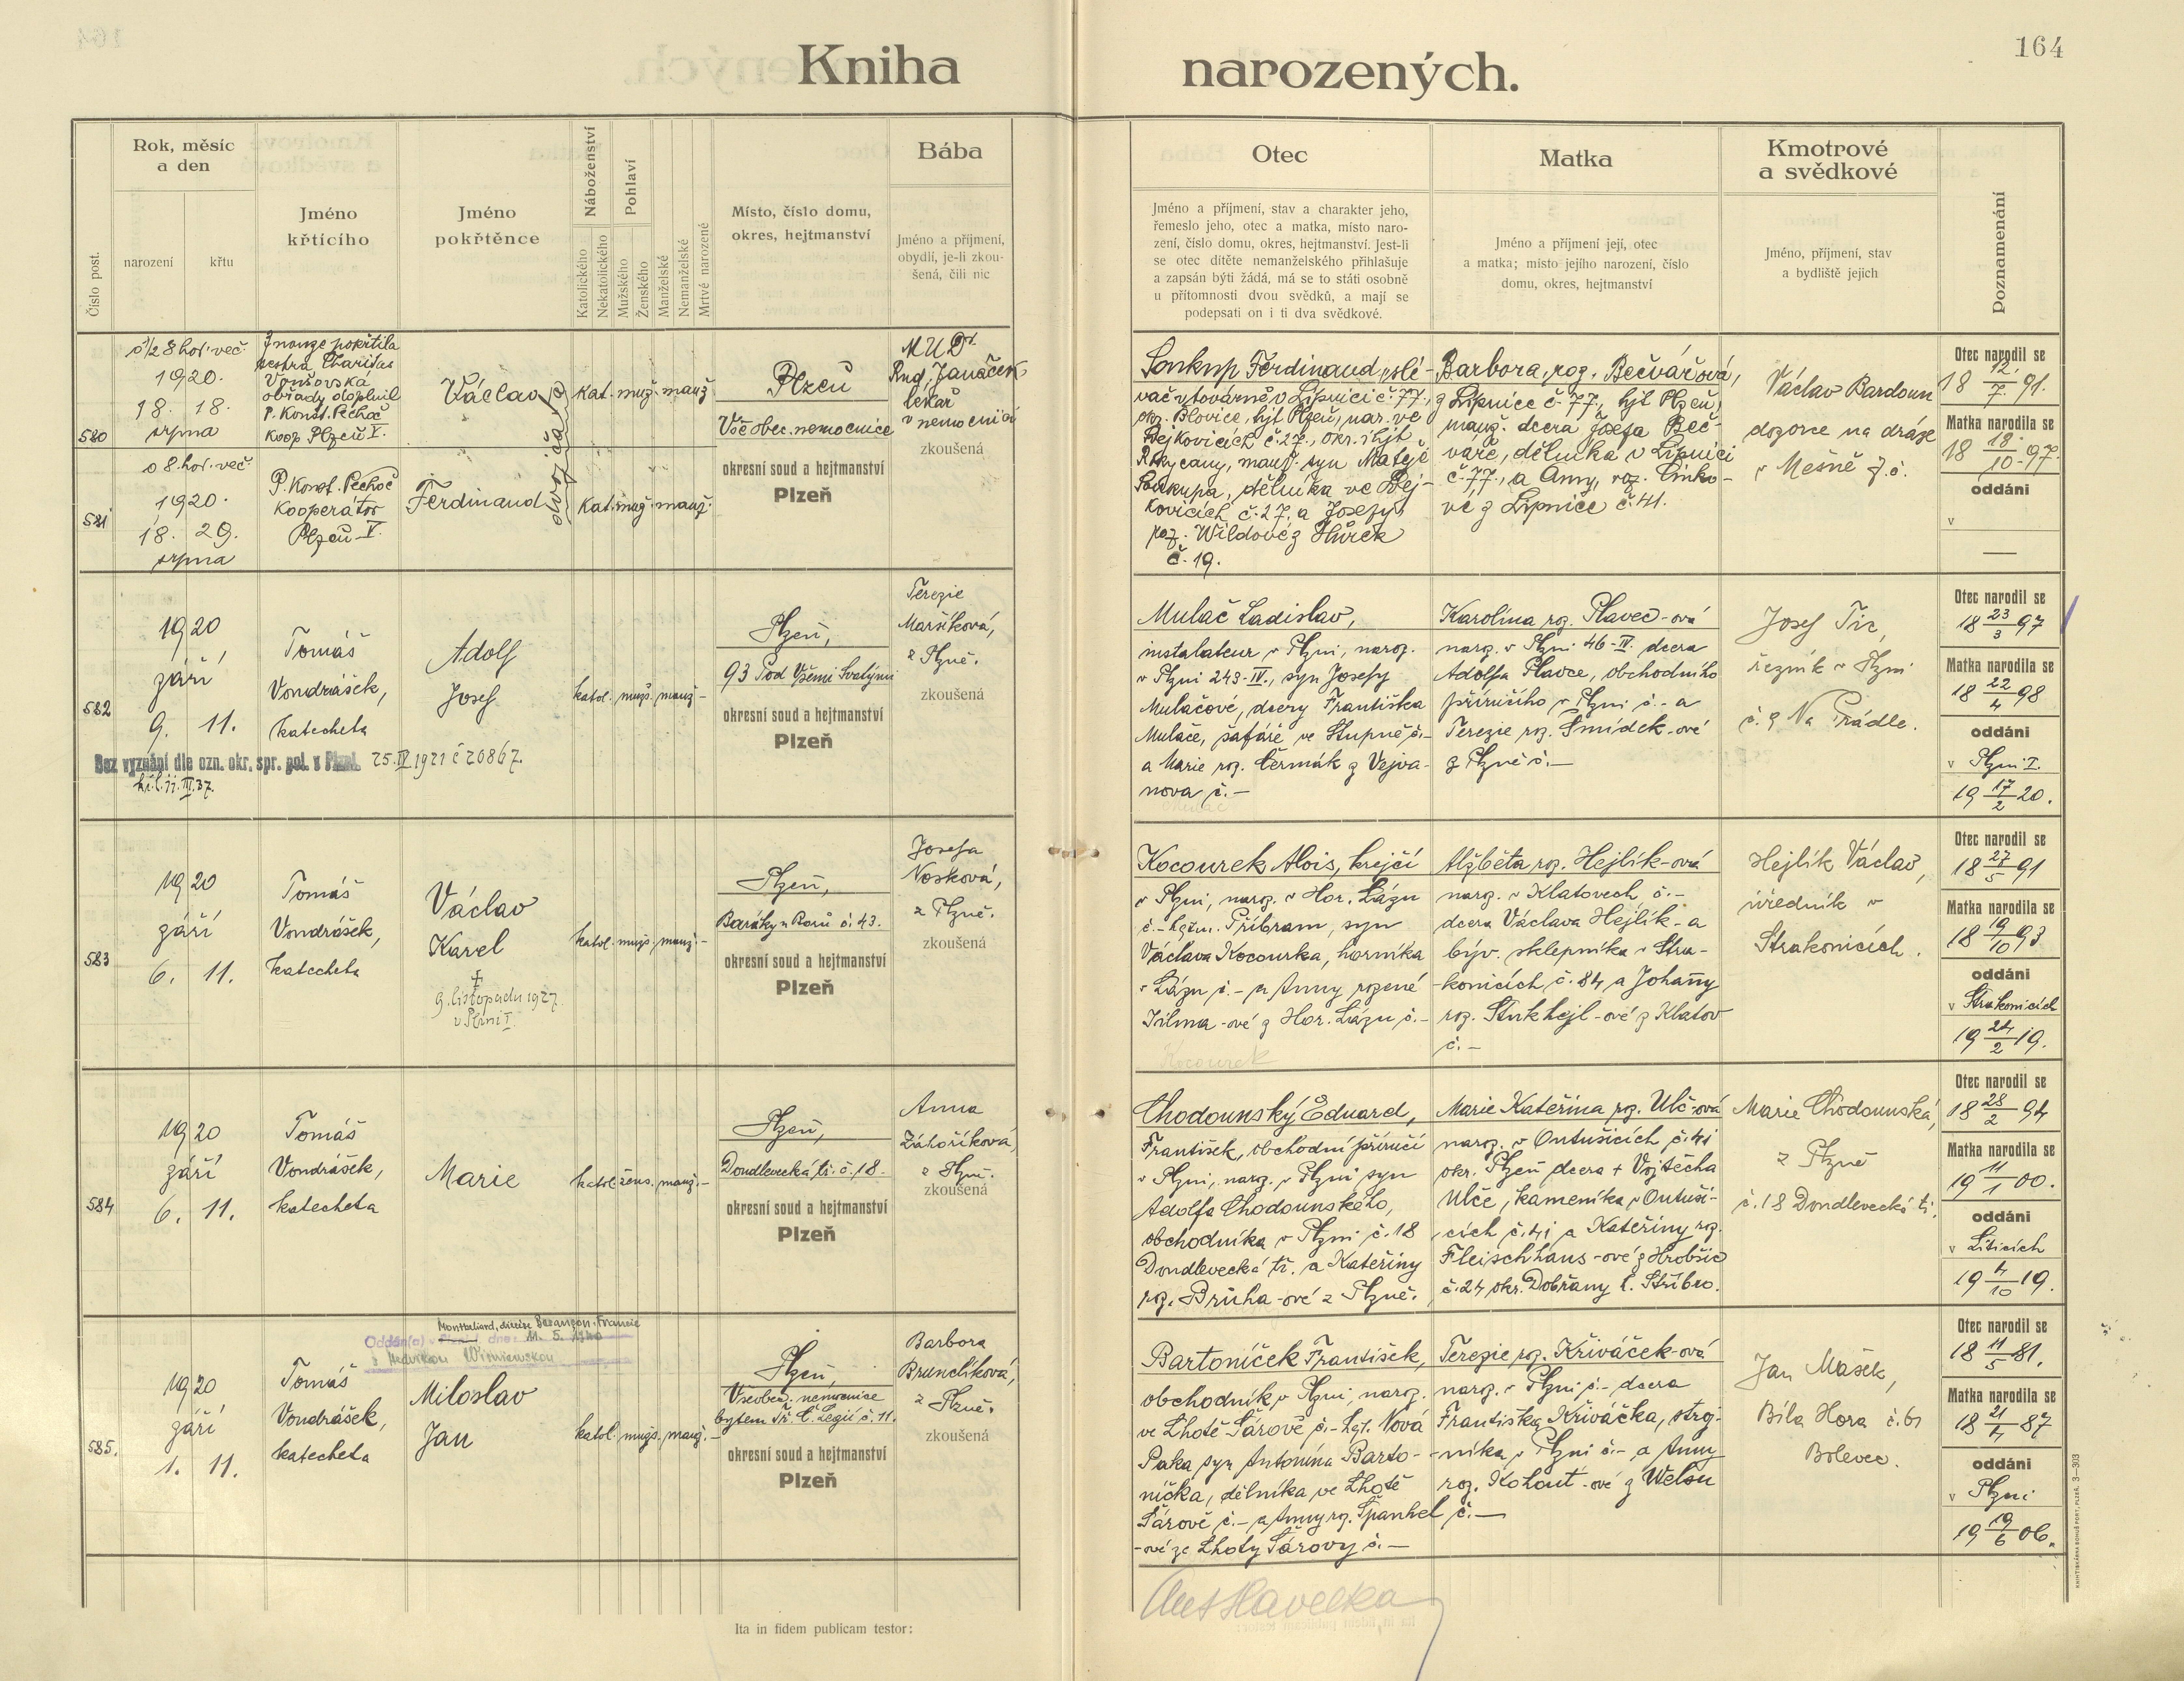 164
Kniha narozených.
Číslo post.
Rok, měsíc
a den
narození
křtu
Jméno
křtícího
Jméno
pokřtěnce
Náboženství
Katolického
Nekatolického
Pohlaví
Mužského
Ženského
Manželské
Nemanželské
Mrtvé narozené
Místo, číslo domu,
okres, hejtmanství
Bába
Jméno a příjmení,
obydlí, je-li zkou-
šená, čili nic
Otec
Jméno a příjmení, stav a charakter jeho,
řemeslo jeho, otec a matka, místo naro-
zení, číslo domu, okres, hejtmanství. Jest-li
se otec dítěte nemanželského přihlašuje
a zapsán býti žádá, má se to státi osobně
u přítomnosti dvou svědků, a mají se
podepsati on i ti dva svědkové.
Matka
Jméno a příjmení její, otec
a matka; místo jejího narození, číslo
domu, okres, hejtmanství
Kmotrové
a svědkové
Jméno, příjmení, stav
a bydliště jejich
Doznamenání
580
1920.
18. 18.
srpna
Z nouze pokřtila
sestra Charitas
Voršovská
obřady doplnil
P. Konst. Pechoč
koop Plzeň V.
Václav
dvojčata
kat. muž. manž.
581
o 8. hod. več.
1920.
18. 29.
srpna
P. Konst. Pechoč
kooperátor
Plzeň V.
Ferdinand
kat. muž. manž.
Plzeň
Všeobec. nemocnice
okresní soud a hejtmanství
Plzeň
MUDr.
Rud. Janáček
lékař
v nemocnici
zkoušená
Soukup Ferdinand, slé-
vač v továrně v Lipnici č. 77,
okr. Blovice, hjt Plzeň, nar. ve
Vejkovicích č. 27., okr. i hjt
Rokycany, manž. syn Matěje
Soukupa, dělníka ve Vej-
kovicích č. 27. a Josefy
roz. Wildové z Hůrek
č. 19.
Barbora, roz. Bečvářová,
z Lipnice č. 77., hjt Plzeň,
manž. dcera Josefa Beč-
váře, dělníka v Lipnici
č. 77., a Anny, roz. Cinko-
vé z Lipnice č. 41.
Václav Bardoun
dozorce na dráze
v Mešně 7. č.
Otec narodil se
18 12./7. 91.
Matka narodila se
18 18./10. 97.
oddáni
v
—
582
1920
září
9. 11.
Tomáš
Vondrášek,
katecheta
Adolf
Josef
katol. muž. manž.-
Bez vyznání dle ozn. okr. spr. pol. v Plzni. 25.IV 1921 č 20867.
Plzeň,
93 Pod Všemi Svatými
okresní soud a hejtmanství
Plzeň
Terezie
Maršíková,
z Plzně.
zkoušená
Mulač Ladislav,
instalateur v Plzni, naroz.
v Plzni 243-IV., syn Josefy
Mulačové, dcery Františka
Mulače, šafáře ve Stupně č.-
a Marie roz. Čermák z Vejva-
nova č.-
Karolina roz. Plavec-ová
naroz. v Plzni 46-IV. dcera
Adolfa Plavce, obchodního
příručího v Plzni č.- a
Terezie roz. Šmídek-ové
z Plzně č.-
Josef Tic,
řezník v Plzni
č. 9 Na Prádle.
Otec narodil se
18 23/3 97
Matka narodila se
18 22/4 98
oddáni
v Plzni I.
19 17/2 20.
583
1920
září
6. 11.
Tomáš
Vondrášek,
katecheta
Václav
Karel
†
9. listopadu 1927
v Plzni I.
katol. muž. manž.-
Plzeň,
Baráky u Borů č. 43.
okresní soud a hejtmanství
Plzeň
Josefa
Nosková,
z Plzně.
zkoušená
Kocourek Alois, krejčí
v Plzni, naroz. v Hor. Lázu
č.- hejtm. Příbram, syn
Václava Kocourka, horníka
v Lázu č.- a Anny rozené
Jilma-ové z Hor. Lázu č.-
Kocourek
Alžběta roz. Hejlík-ová
naroz. v Klatovech č.-
dcera Václava Hejlík-a
býv. sklepníka v Stra-
konicích č. 84, a Johany
roz. Stukhejl-ové z Klatov
č.-
Hejlík Václav,
úředník v
Strakonicích.
Otec narodil se
18 27/5 91
Matka narodila se
18 19/10 93
oddáni
v Strakonicích
19 24/2 19.
584
1920
září
6. 11.
Tomáš
Vondrášek,
katecheta
Marie
katol. žens. manž.-
Plzeň,
Doudlevecká tř. č. 18.
okresní soud a hejtmanství
Plzeň
Anna
Záhoříková,
z Plzně.
zkoušená
Chodounský Eduard,
František, obchodní příručí
v Plzni, naroz. v Plzni syn
Adolfa Chodounského,
obchodníka v Plzni č. 18
Doudlevecká tř. a Kateřiny
roz. Brůha-ové z Plzně.
Marie Kateřina roz. Ulč-ová
naroz. v Untušicích č. 41
okr. Plzeň dcera † Vojtěcha
Ulče, kameníka v Untuši-
cích č. 41 a Kateřiny roz.
Fleischhans-ové z Hrobšic
č. 24 okr. Dobřany h. Stříbro.
Marie Chodounská,
z Plzně
č. 18 Doudlevecká tř.
Otec narodil se
18 28/2 94
Matka narodila se
19 11/1 00.
oddáni
v Liticích
19 4/10 19.
585.
1920
září
1. 11.
Tomáš
Vondrášek,
katecheta
Montbeliard, diecése Besançon, Francie
Oddán(a) v Plzni I. dne: 11. 5. 1940
s Hedvikou Wisniewskou
Miloslav
Jan
katol. muž. manž.-
Plzeň,
Všeobec. nemocnice
bytem Tř. Č. Legií č. 11.
okresní soud a hejtmanství
Plzeň
Barbora
Brunclíková,
z Plzně.
zkoušená
Bartoníček František,
obchodník v Plzni, naroz.
ve Lhotě Šárově č.- hejt. Nová
Paka syn Antonína Barto-
níčka, dělníka ve Lhotě
Šárově č.- a Anny roz. Španhel
-ové ze Lhoty Šárovy č.-
Terezie roz. Křiváček-ová
naroz. v Plzni č.- dcera
Františka Křiváčka, stroj-
níka v Plzni č.- a Anny
roz. Kohout-ové z Welsu
č.-
Jan Mašek,
Bílá Hora č. 61
Bolevec.
Otec narodil se
18 11/5 81.
Matka narodila se
18 21/4 87
oddáni
v Plzni
19 19/6 06.
Ita in fidem publicam testor:
Ant Havelka
KNIHTISKÁRNA BOHUŠ PORT, PLZEŇ. 3—303